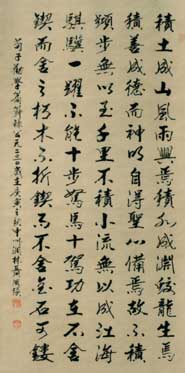 積土成山風雨興焉積水成淵蛟龍生焉
積善成德而神明自得聖心備焉故不積
蹞步無以至千里不積小流無以成江海
騏驥一躍不能十步駑馬十駕功在不舍
鍥而舍之朽木不折鍥而不舍金石可鏤
荀子勸學篇節錄